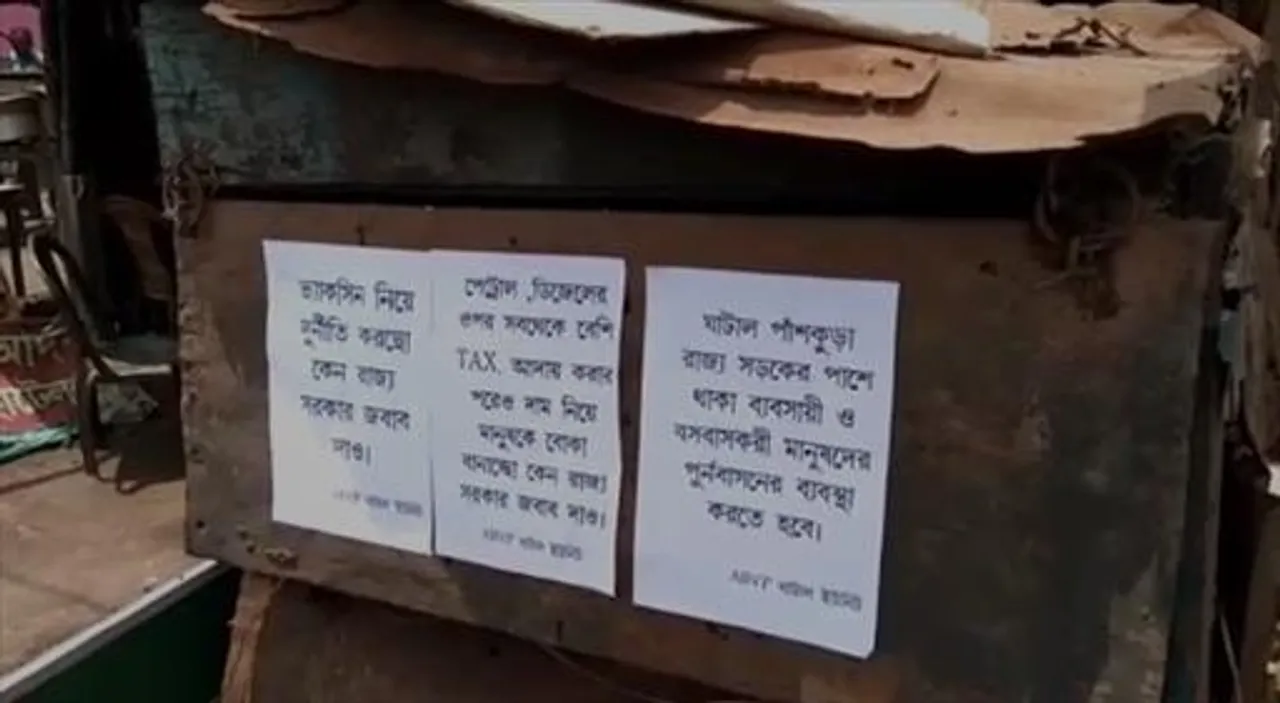 ভ্যাকসিন নিয়ে
দুর্নীতি করছো
কেন রাজ্য
সরকার জবাব
দাও।
ABVP ঘাটাল ইউনিট
পেট্রোল ,ডিজেলের
ওপর সবথেকে বেশি
TAX. আদায় করার
পরেও দাম নিয়ে
মানুষকে বোকা
বানাচ্ছো কেন রাজ্য
সরকার জবাব দাও।
ABVP ঘাটাল ইউনিট
ঘাটাল পাঁশকুড়া
রাজ্য সড়কের পাশে
থাকা ব্যবসায়ী ও
বসবাসকরী মানুষদের
পুর্নবাসনের ব্যবস্থা
করতে হবে।
ABVP ঘাটাল ইউনিট